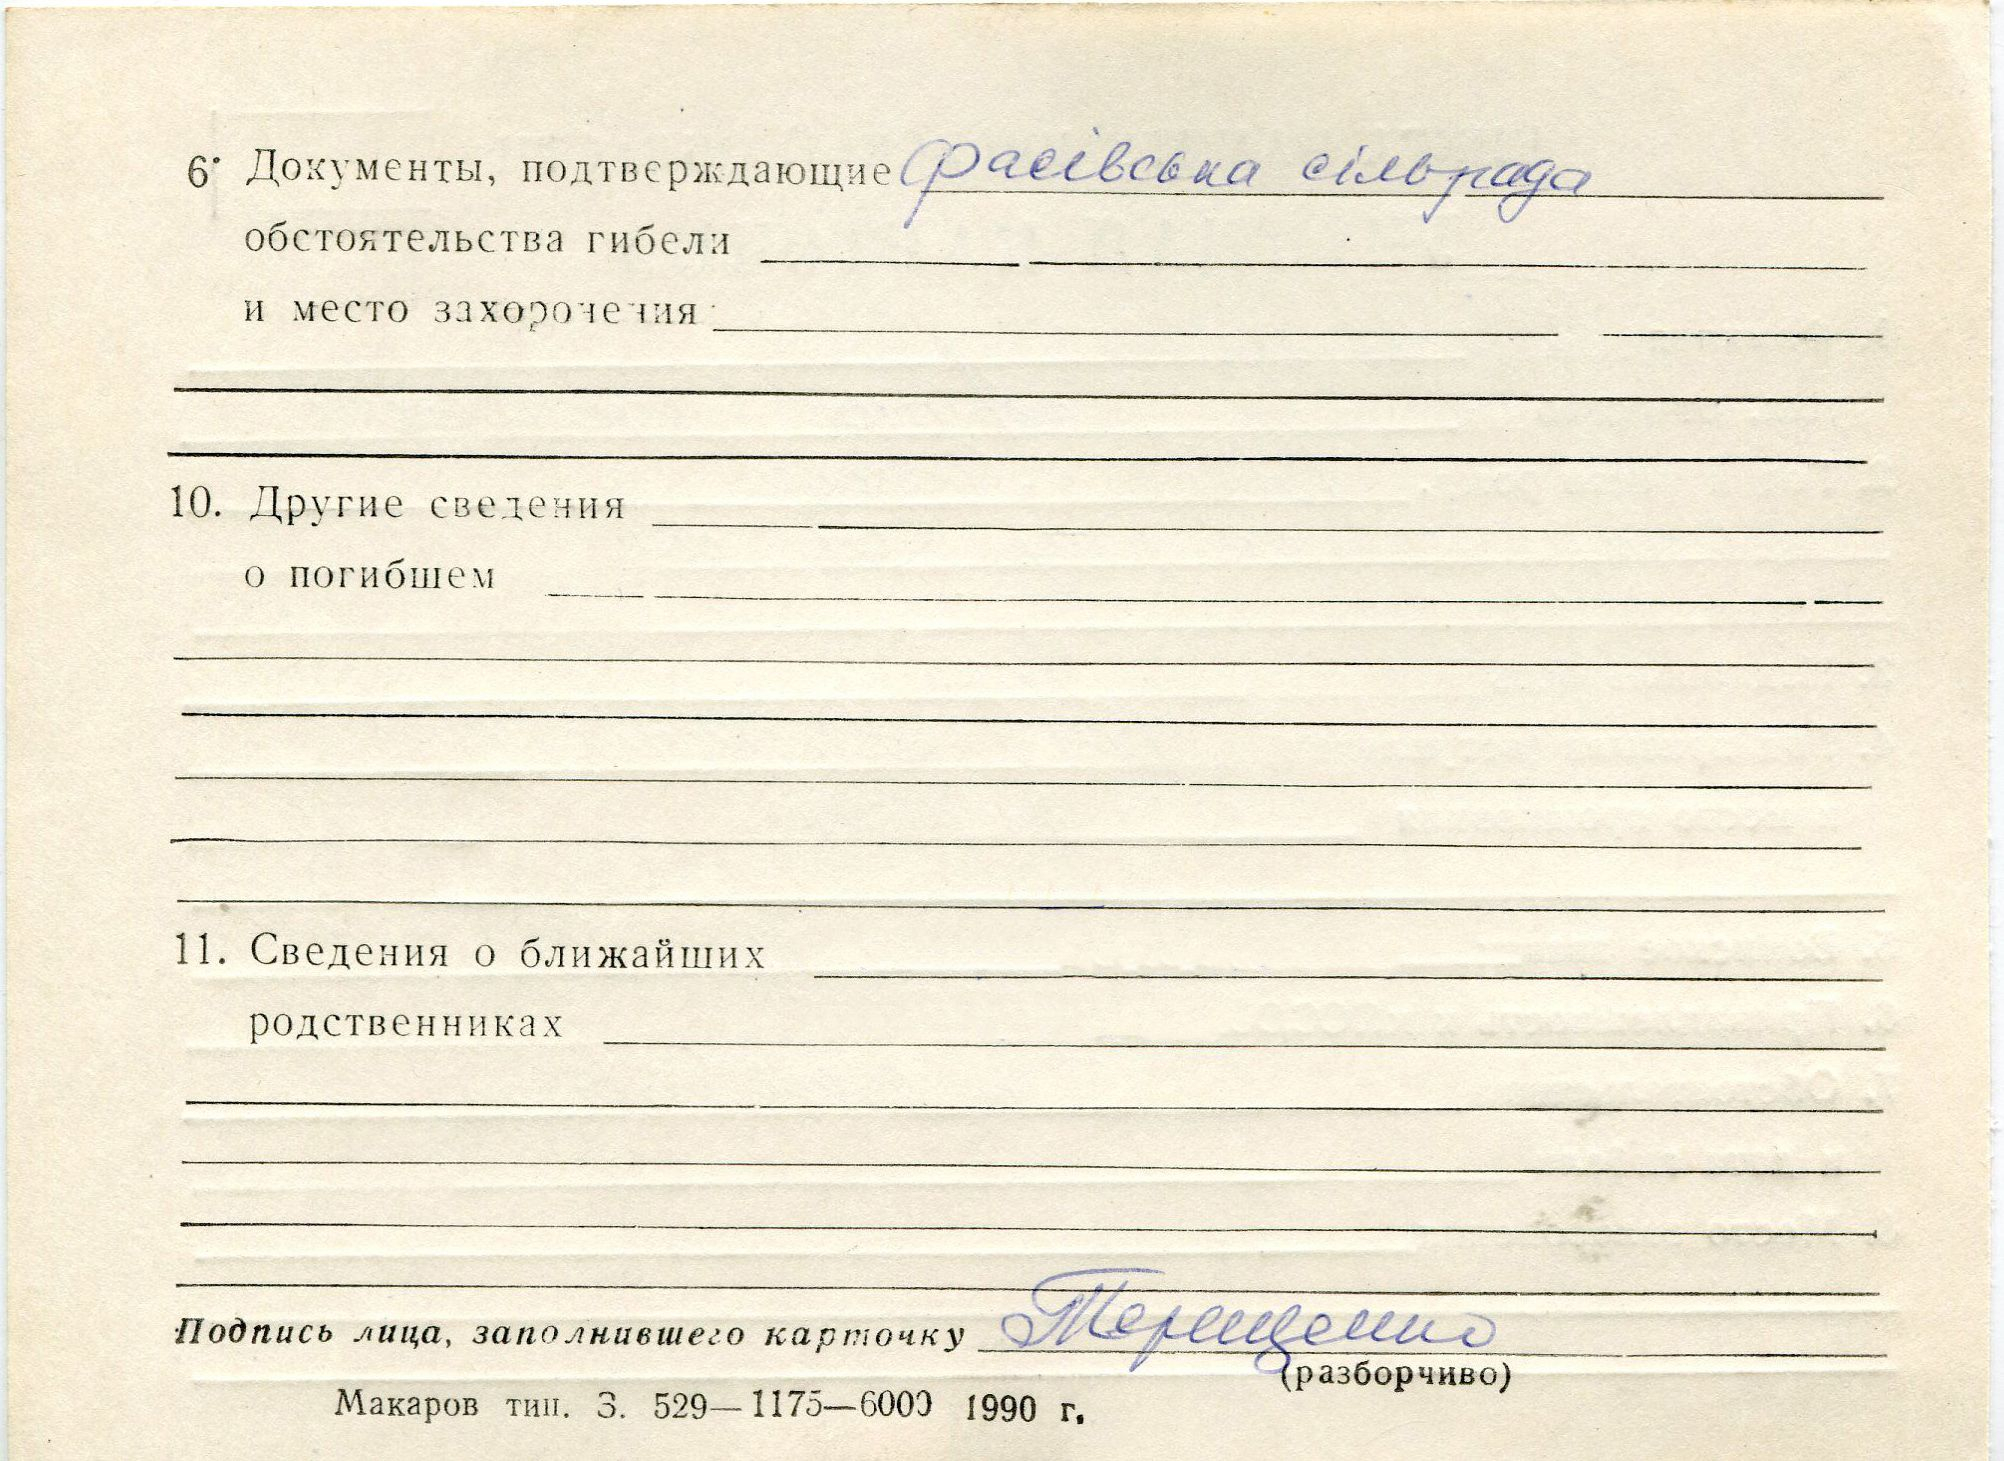 6. Документы, подтверждающие Фасівська сільрада
обстоятельства гибели
и место захоронения
10. Другие сведения
о погибшем
11. Сведения о ближайших
родственниках
Подпись лица, заполнившего карточку Терещенко
(разборчиво)
Макаров тип. З. 529—1175—6000 1990 г.